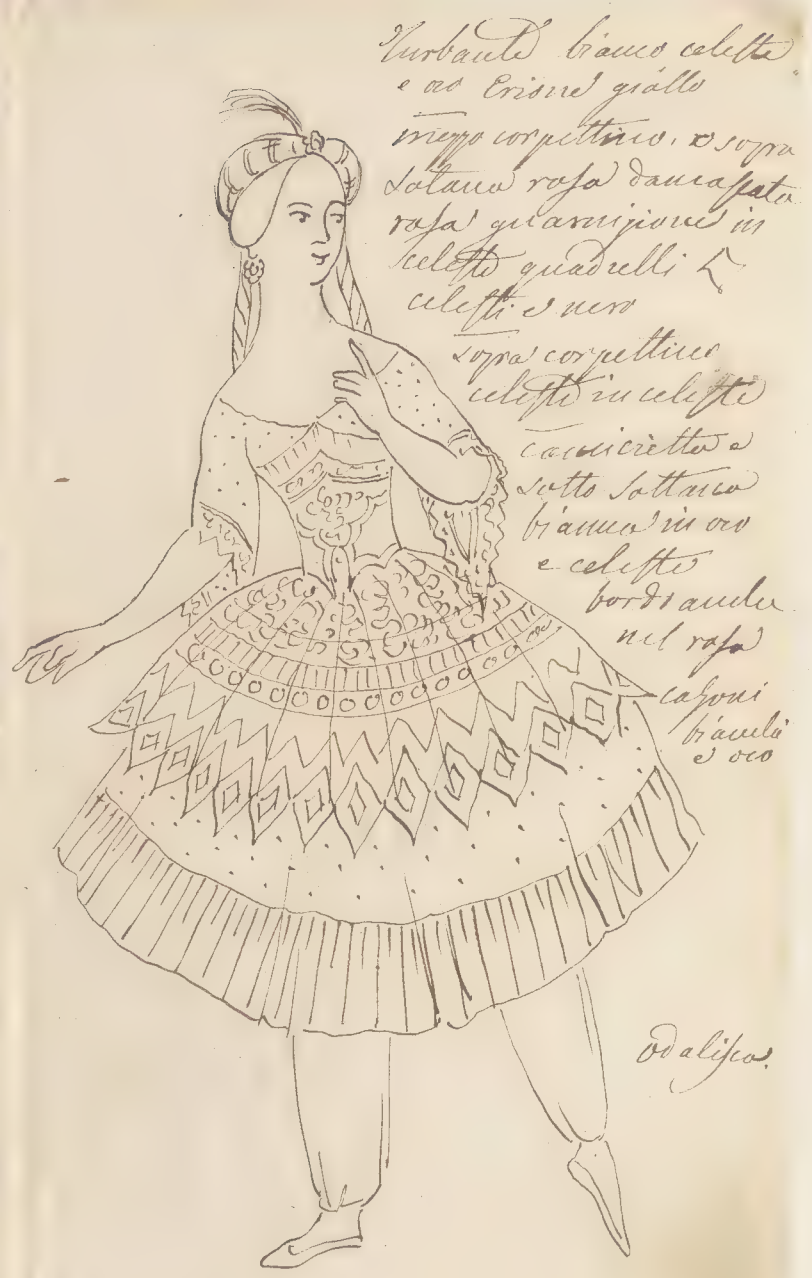 Turbante bianco celeste
e oro Erione giallo
mezzo corpettino. e sopra
sotana rosa damascata
rosa guarnizione in
celeste quadrelli
celesti e nero
sopra corpettino
celeste in celeste
camicietta e
sotto sottana
bianca in oro
e celeste
bordo anche
nel rosa
calzoni
bianchi
e oro
odalisca.